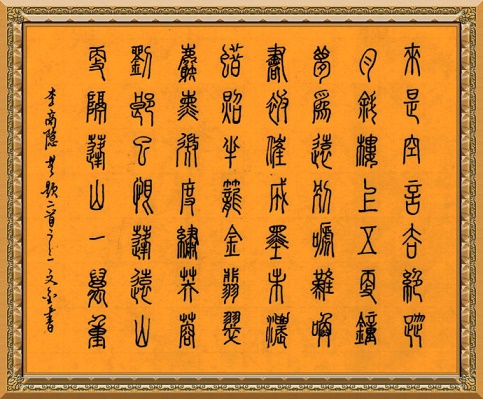 來是空言去絕蹤
月斜樓上五更鐘
夢為遠別啼難喚
書被催成墨未濃
蠟照半籠金翡翠
麝熏微度繡芙蓉
劉郎已恨蓬遠山
更隔蓬山一萬重
李商隱無題二首之一文書